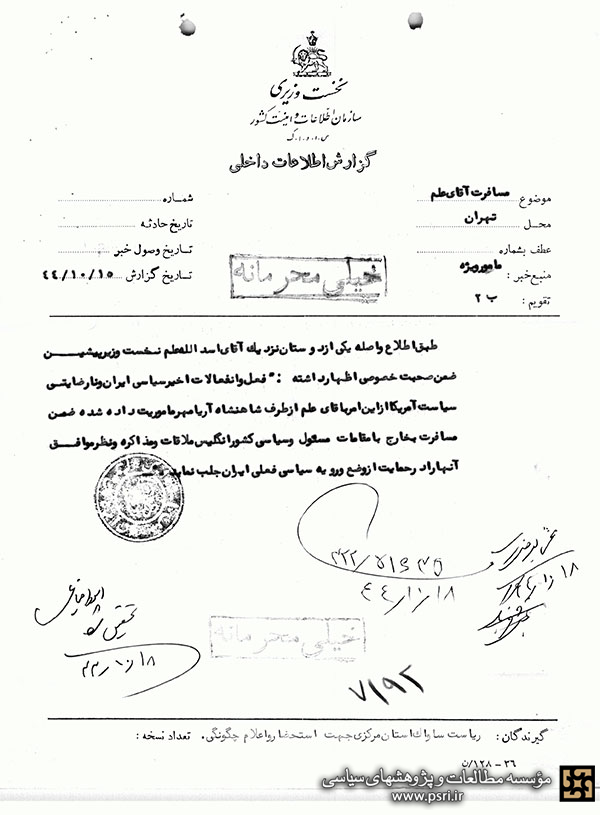 نخست وزیری
سازمان اطلاعات و امنیت کشور
س.ا.و.ا.ک
گزارش اطلاعات داخلی
موضوع مسافرت آقای علم
شماره
محل تهران
تاریخ حادثه
عطف بشماره
تاریخ وصول خبر
منبع خبر: مامور ویژه
تاریخ گزارش ۴۴/۱۰/۱۵
تقویم: ب ۲
خیلی محرمانه
طبق اطلاع واصله یکی از دوستان نزدیک آقای اسد الله علم نخست وزیر پیشین
ضمن صحبت خصوصی اظهار داشته: "فعل و انفعالات اخیر سیاسی ایران و نارضایتی
سیاست آمریکا از این امر آقای علم از طرف شاهنشاه آریامهر ماموریت داده شده ضمن
مسافرت بخارج با مقامات مسئول و سیاسی کشور انگلیس ملاقات و مذاکره و نظر موافق
آنها را در حمایت از وضع و رویه سیاسی فعلی ایران جلب نماید
۱۸
۴۴/۱۰/۱۸
تحقیق شود
خیلی محرمانه
۷۱۹۲
گیرندگان: ریاست ساواک استان مرکزی جهت استحضار و اعلام چگونگی. تعداد نسخه:
۳۶-۱۲۸/ن
مؤسسه مطالعات و پژوهشهای سیاسی
www.psri.ir